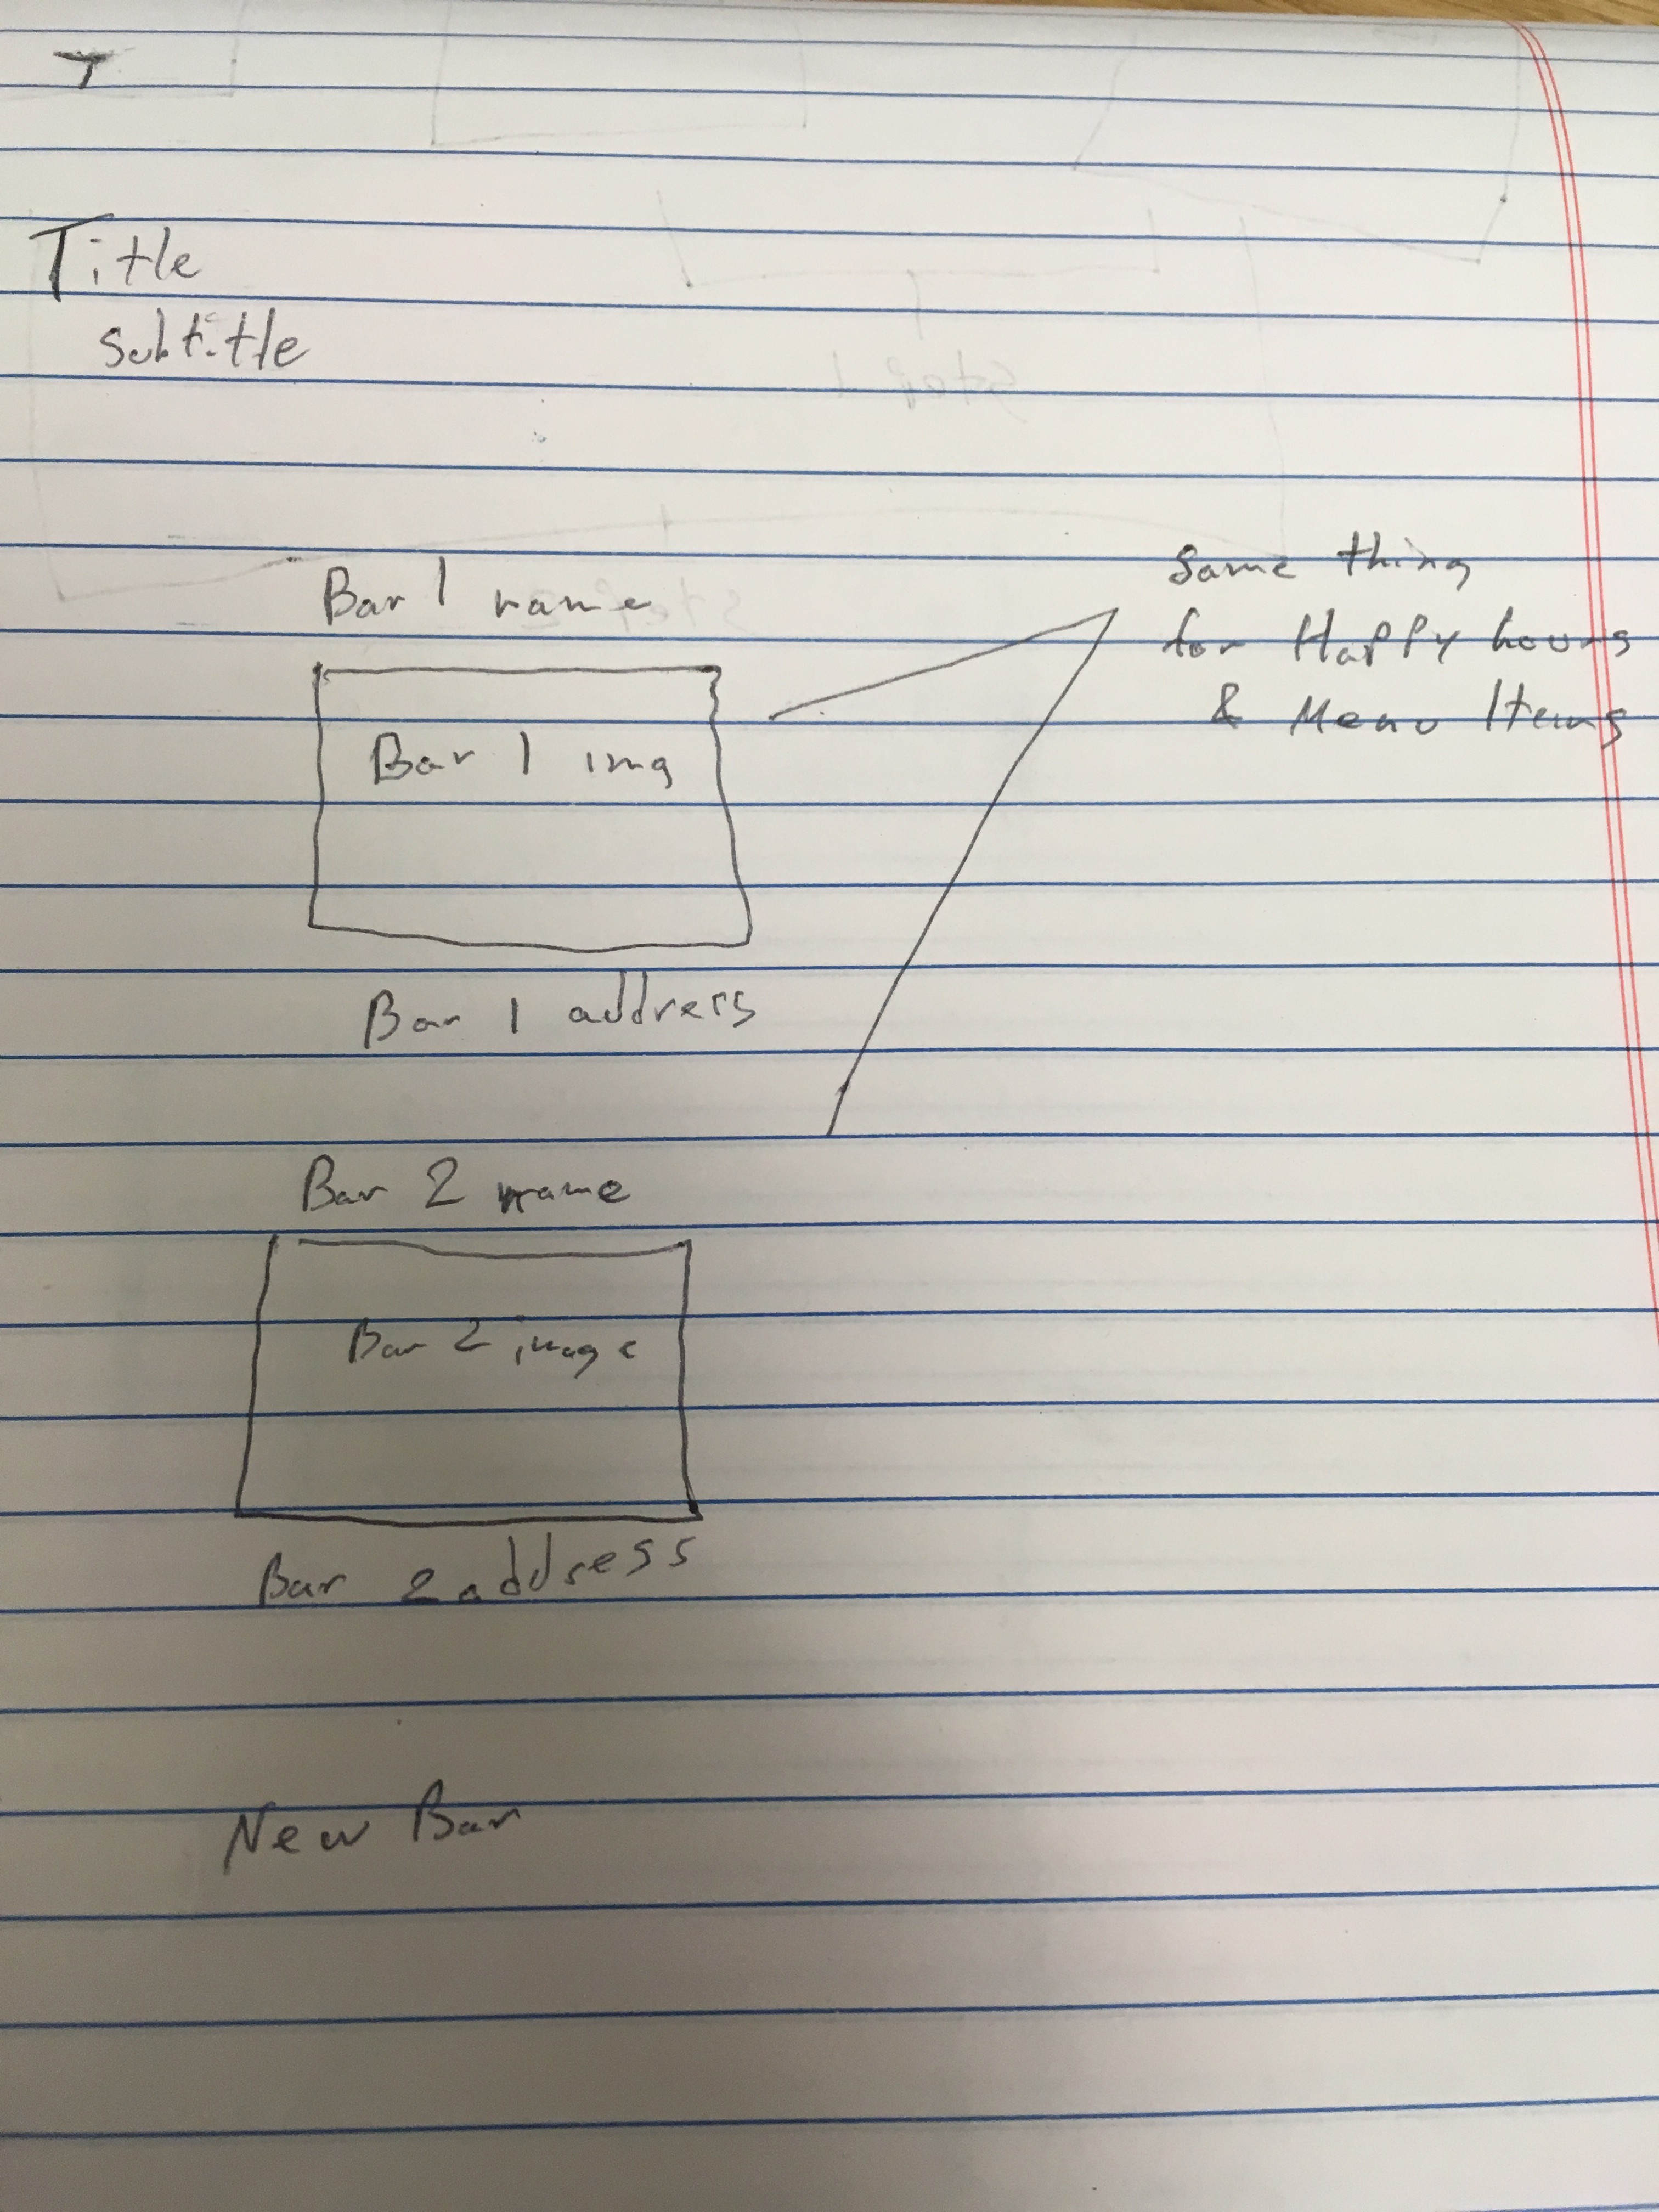 T
Title
subtitle
Bar 1 name
Bar 1 img
Bar 1 address
same thing
for Happy hours
& Menu Items
Bar 2 name
Bar 2 image
Bar 2 address
New Bar